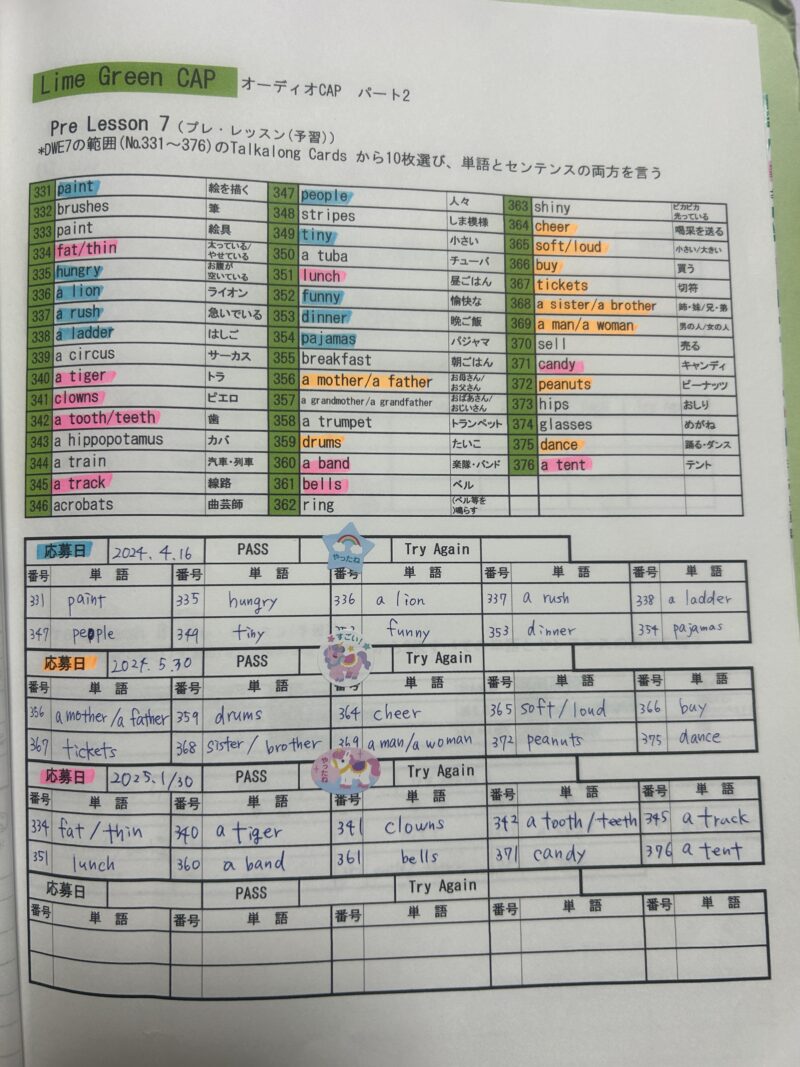 Lime Green CAP オーディオCAP パート2
Pre Lesson 7 (プレ・レッスン(予習))
*DWE7の範囲(No.331~376)のTalkalong Cards から10枚選び、単語とセンテンスの両方を言う
331 paint 絵を描く 347 people 人々 363 shiny ピカピカ光っている
332 brushes 筆 348 stripes しま模様 364 cheer 喝采を送る
333 paint 絵具 349 tiny 小さい 365 soft/loud 小さい/大きい
334 fat/thin 太っている/やせている 350 a tuba チューバ 366 buy 買う
335 hungry お腹が空いている 351 lunch 昼ごはん 367 tickets 切符
336 a lion ライオン 352 funny 愉快な 368 a sister/a brother 姉・妹/兄・弟
337 a rush 急いでいる 353 dinner 晩ご飯 369 a man/a woman 男の人/女の人
338 a ladder はしご 354 pajamas パジャマ 370 sell 売る
339 a circus サーカス 355 breakfast 朝ごはん 371 candy キャンディ
340 a tiger トラ 356 a mother/a father お母さん/お父さん 372 peanuts ピーナッツ
341 clowns ピエロ 357 a grandmother/a grandfather おばあさん/おじいさん 373 hips おしり
342 a tooth/teeth 歯 358 a trumpet トランペット 374 glasses めがね
343 a hippopotamus カバ 359 drums たいこ 375 dance 踊る・ダンス
344 a train 汽車・列車 360 a band 楽隊・バンド 376 a tent テント
345 a track 線路 361 bells ベル
346 acrobats 曲芸師 362 ring (ベル等を)鳴らす
応募日 2024.4.16 PASS やったね Try Again
番号 単語 番号 単語 番号 単語 番号 単語 番号 単語
331 paint 335 hungry 336 a lion 337 a rush 338 a ladder
347 people 349 tiny funny 353 dinner 354 pajamas
応募日 2024.5.30 PASS すごい! Try Again
番号 単語 番号 単語 番号 単語 番号 単語 番号 単語
356 a mother/a father 359 drums 364 cheer 365 soft/loud 366 buy
367 tickets 368 sister/brother 369 a man/a woman 372 peanuts 375 dance
応募日 2025.1/30 PASS やったね Try Again
番号 単語 番号 単語 番号 単語 番号 単語 番号 単語
334 fat/thin 340 a tiger 341 clowns 342 a tooth/teeth 345 a track
351 lunch 360 a band 361 bells 371 candy 376 a tent
応募日 PASS Try Again
番号 単語 番号 単語 番号 単語 番号 単語 番号 単語